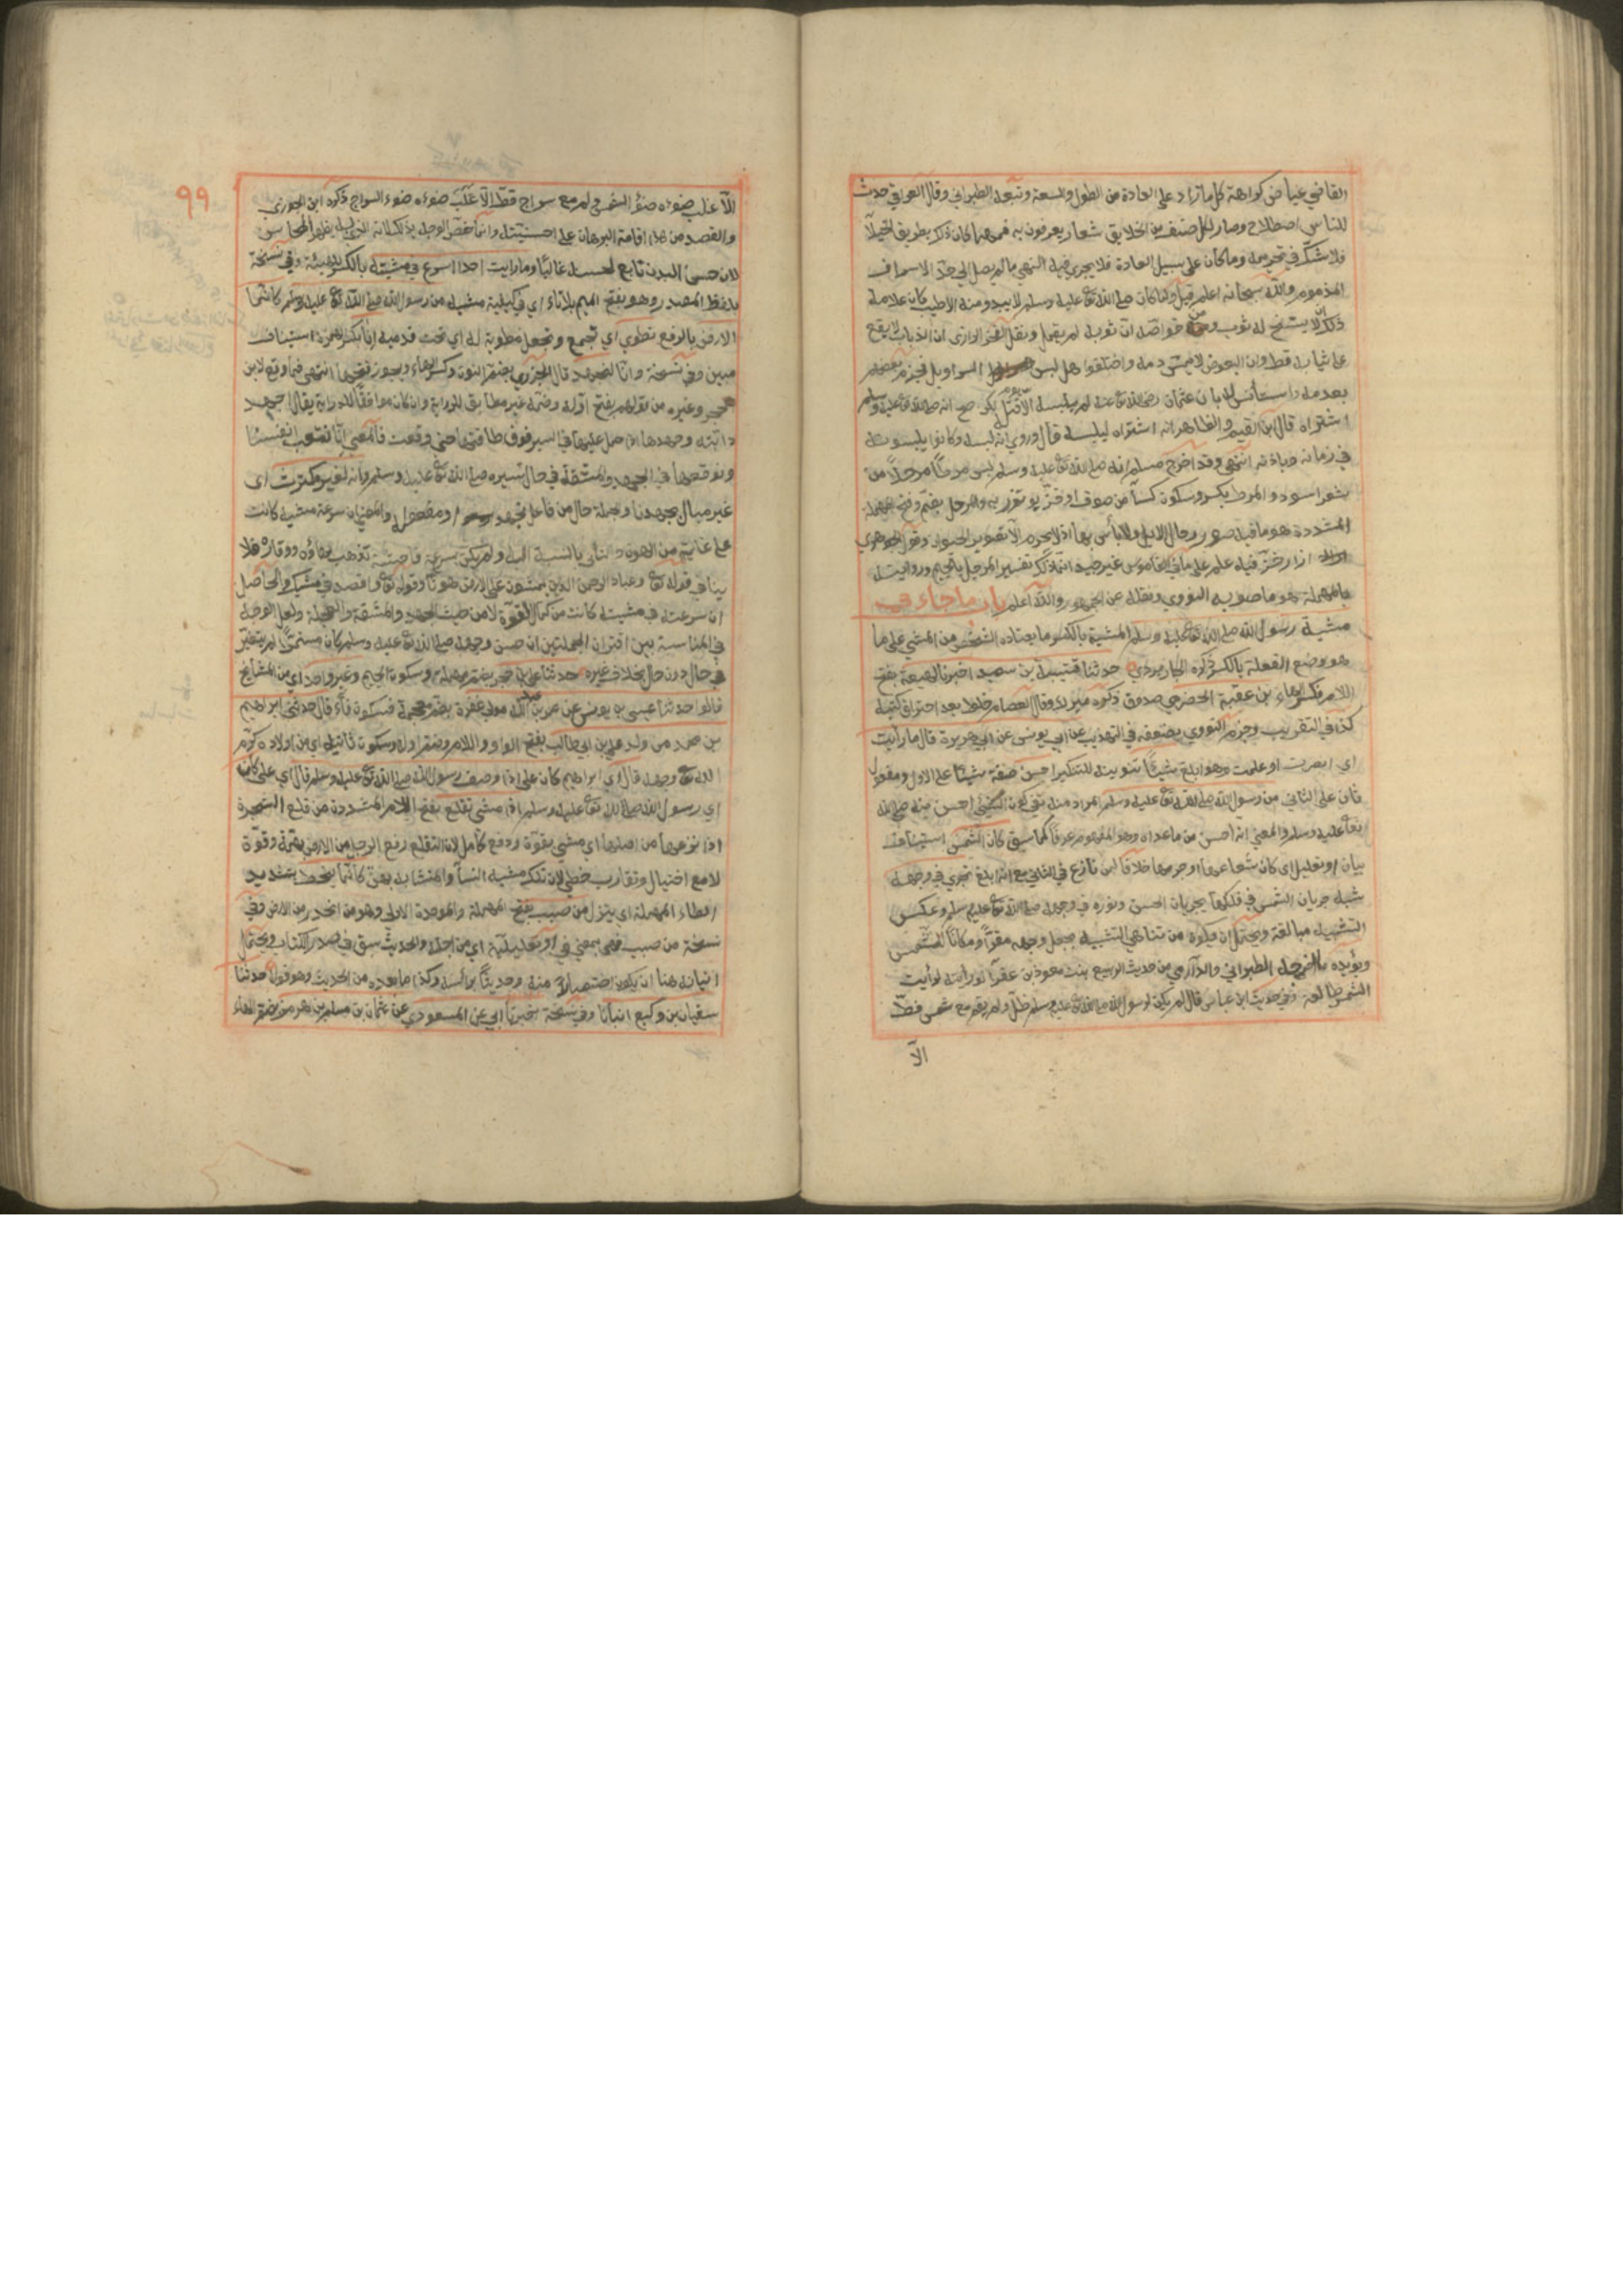 القاضي عياض كراهة كل ما زاد على العادة من الطول والسعة وتبعه الطبراني وقال العراقي حدث
للناس اصطلاح وصار لكل صنف من الخلايق شعار يعرفون به فمهما كان ذلك بطريق الخيلاء
فلا شك في تحريمه وما كان على سبيل العادة فلا يجري فيه النهي ما لم يصل الى حد الاسراف
المذموم والله سبحانه اعلم قيل ولما كان صلى الله تع عليه وسلم لا يبدو منه الا طيب كان علامة
ذلك ان لا يتسخ له ثوب ومن خواصه ان ثوبه لم يقمل ونقل الفخر الرازي ان الذباب لا يقع
على ثيابه قط وان البعوض لا يمتص دمه واختلفوا هل لبس السراويل فجزم بعضهم
بعدمه واستأنس له بان عثمان رضي الله تع عنه لم يلبسه الا يوم قتل لكن صح انه صلى الله تع عليه وسلم
اشتراه قال ابن القيم والظاهر انه اشتراه ليلبسه قال وروي انه لبسه وكانوا يلبسونه
في زمانه وباذنه انتهى وقد اخرج مسلم انه صلى الله تع عليه وسلم لبس مرطا مرحلا من
شعر اسود والمرط بكسر وسكون كساء من صوف او خز يوتزر به والمرحل بضم وفتح مهملة
المشددة هو ما فيه صور رحال الابل ولا بأس بها اذ لا يحرم الا تصوير الحيوان وقول الجوهري
ازار خز فيه علم على ما في القاموس غير جيد انما ذلك تفسير المرجل بالجيم وروايته
بالمهملة هو ما صوبه النووي ونقله عن الجمهور والله اعلم باب ما جاء في
مشية رسول الله صلى الله تع عليه وسلم المشية بالكسر ما يعتاده الشخص من المشي على ما
هو وضع الفعلة بالكسر ذكره الجاربردي حدثنا قتيبة بن سعيد اخبرنا ابن لهيعة بفتح
اللام فكسر الهاء بن عقبة الحضرمي صدوق ذكره ميرك وقال العصام خلط بعد احتراق كتبه
كذا في التقريب وجزم النووي بضعفه في التهذيب عن ابي يونس عن ابي هريرة قال ما رأيت
اي ابصرت او علمت وهو ابلغ شيئا تنوينه للتنكير احسن صفة شيئا على الاول ومفعول
ثان على الثاني من رسول الله صلى الله تع عليه وسلم المراد منه نفي كون الشيء احسن منه صلى الله
تع عليه وسلم والمعنى انه احسن من ما عداه وهو المفهوم عرفا كما سبق كان الشمس استيناف
بيان او تعليل اي كان شعاعها او جرمها خلافا لمن نازع في الثاني مع انه ابلغ تجري في وجهه
شبه جريان الشمس في فلكها بجريان الحسن ونوره في وجهه صلى الله تع عليه وسلم وعكس
التشبيه مبالغة ويحتمل ان يكون من تناهي التشبيه بجعل وجهه مقرا ومكانا للشمس
ويؤيده ما اخرجه الطبراني والدارمي من حديث الربيع بنت معوذ بن عفرا لو رأيته لرأيت
الشمس طالعة وفي حديث ابن عباس قال لم يكن لرسول الله صلى الله تع عليه وسلم ظل ولم يقم مع شمس قط
الا
٩٩
الا غلب ضوءه ضوء الشمس ولم مع سراج قط الا غلب ضوءه ضوء السراج ذكره ابن الجوزي
والقصد من هذا اقامة البرهان على احسنيته وانما خص الوجه بذلك لانه الذي به يظهر المحاسن
لان حسن البدن تابع لحسنه غالبا وما رأيت احدا اسرع في مشيته بالكسر للهيئة وفي نسخة
بلفظ المصدر وهو بفتح الميم بلا تاء اي في كيفية مشيه من رسول الله صلى الله تع عليه وسلم كانما
الارض بالرفع تطوى اي تجمع وتجعل مطوية له اي تحت قدميه انا بكسر الهمزة استيناف
مبين وفي نسخة وانا لنجهد قال الجزري بضم النون وكسر الهاء ويجوز فتحهما انتهى فما وقع لابن
حجر وغيره من قولهم بفتح اوله وضمه غير مطابق للرواية وان كان موافقا للدراية يقال اجهد
دابته وجهدها اذا حمل عليها في السير فوق طاقتها حتى وقعت فالمعنى انا نتعب انفسنا
ونوقعها في الجهد والمشقة في حال سيره صلى الله تع عليه وسلم وانه لغير مكترث اي
غير مبال بجهدنا والجملة حال من فاعل نجهد او مفعوله والمعنى ان سرعة مشيه كانت
على غاية من الهون والتأني بالنسبة اليه ولم يكن بسرعة فاحشة تذهب بهاؤه ووقاره فلا
ينافي قوله تع وعباد الرحمن الذين يمشون على الارض هونا وقوله تع واقصد في مشيك والحاصل
ان سرعته في مشيته كانت من كمال القوة لا من حيث الجهد والمشقة والعجلة ولعل الوجه
في المناسبة بين اقتران الجملتين ان حسن وجهه صلى الله تع عليه وسلم كان مستمرا لم يتغير
في حال دون حال بخلاف غيره حدثنا علي بن حجر بضم مهملة وسكون الجيم وغير واحد اي من المشايخ
قالوا حدثنا عيسى بن يونس عن عمر بن عبد الله مولى غفرة بضم معجمة فسكون فاء قال حدثني ابراهيم
بن محمد من ولد علي بن ابي طالب بفتح الواو واللام وضم اوله وسكون ثانيه اي من اولاده كرم
الله تع وجهه قال اي ابراهيم كان علي اذا وصف رسول الله صلى الله تع عليه وسلم قال اي علي كان
اي رسول الله صلى الله تع عليه وسلم اذا مشى تقلع بفتح اللام المشددة من قلع الشجرة
اذا نزعها من اصلها اي مشى بقوة ودفع كامل لان التقلع رفع الرجل من الارض بهمة وقوة
لا مع اختيال وتقارب خطى لان تلك مشية النسا والمتشابه بهن كانما ينحط بتشديد
الطاء المهملة اي ينزل من صبب بفتح المهملة والموحدة الاولى وهو من انحدر من الارض وفي
نسخة من صبب فمن بمعنى في او تعليلية اي من اجله والحديث سبق في صدر الكتاب ويحتمل
اتيانه هنا ان يكون اختصارا منه وحديثا برأسه وكذا ما بعده من الحديث وهو قوله حدثنا
سفيان بن وكيع انبأنا وفي نسخة اخبرنا ابي عن المسعودي عن عثمان بن مسلم بن هرمز بضم الهاء